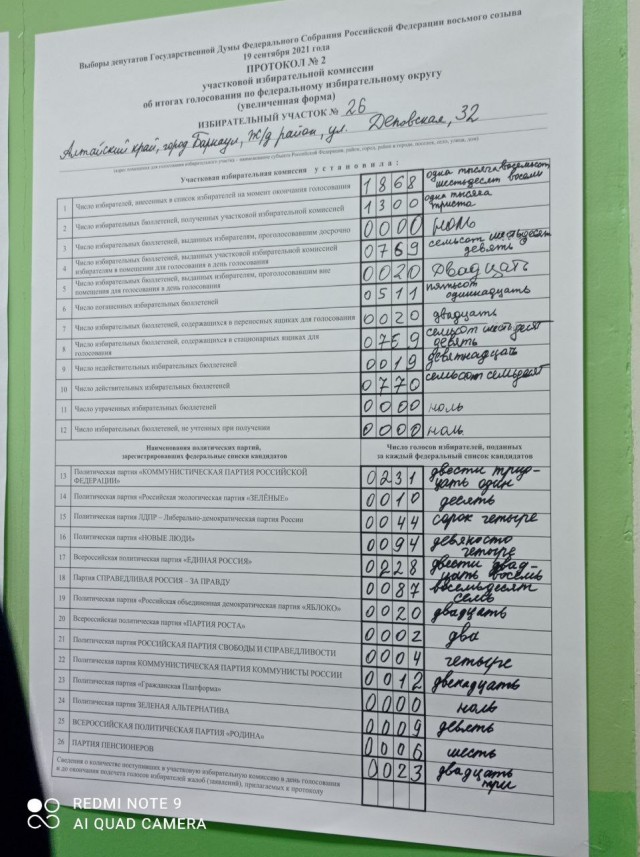 Выборы депутатов Государственной Думы Федерального Собрания Российской Федерации восьмого созыва
19 сентября 2021 года
ПРОТОКОЛ № 2
участковой избирательной комиссии
об итогах голосования по федеральному избирательному округу
(увеличенная форма)
ИЗБИРАТЕЛЬНЫЙ УЧАСТОК № 26
Алтайский край, город Барнаул, Ж/д район, ул. Деповская, 32
Участковая избирательная комиссия установила:
1 Число избирателей, внесенных в список избирателей на момент окончания голосования 1868 одна тысяча восемьсот шестьдесят восемь
2 Число избирательных бюллетеней, полученных участковой избирательной комиссией 1300 одна тысяча триста
3 Число избирательных бюллетеней, выданных избирателям, проголосовавшим досрочно 0000 ноль
4 Число избирательных бюллетеней, выданных участковой избирательной комиссией избирателям в помещении для голосования в день голосования 0769 семьсот шестьдесят девять
5 Число избирательных бюллетеней, выданных избирателям, проголосовавшим вне помещения для голосования в день голосования 0020 двадцать
6 Число погашенных избирательных бюллетеней 0511 пятьсот одиннадцать
7 Число избирательных бюллетеней, содержащихся в переносных ящиках для голосования 0020 двадцать
8 Число избирательных бюллетеней, содержащихся в стационарных ящиках для голосования 0769 семьсот шестьдесят девять
9 Число недействительных избирательных бюллетеней 0019 девятнадцать
10 Число действительных избирательных бюллетеней 0770 семьсот семьдесят
11 Число утраченных избирательных бюллетеней 0000 ноль
12 Число избирательных бюллетеней, не учтенных при получении 0000 ноль
Наименования политических партий, зарегистрировавших федеральные списки кандидатов
Число голосов избирателей, поданных за каждый федеральный список кандидатов
13 Политическая партия «КОММУНИСТИЧЕСКАЯ ПАРТИЯ РОССИЙСКОЙ ФЕДЕРАЦИИ» 0231 двести тридцать один
14 Политическая партия «Российская экологическая партия «ЗЕЛЁНЫЕ» 0010 десять
15 Политическая партия ЛДПР – Либерально-демократическая партия России 0044 сорок четыре
16 Политическая партия «НОВЫЕ ЛЮДИ» 0094 девяносто четыре
17 Всероссийская политическая партия «ЕДИНАЯ РОССИЯ» 0228 двести двадцать восемь
18 Партия СПРАВЕДЛИВАЯ РОССИЯ – ЗА ПРАВДУ 0087 восемьдесят семь
19 Политическая партия «Российская объединенная демократическая партия «ЯБЛОКО» 0020 двадцать
20 Всероссийская политическая партия «ПАРТИЯ РОСТА» 0002 два
21 Политическая партия РОССИЙСКАЯ ПАРТИЯ СВОБОДЫ И СПРАВЕДЛИВОСТИ 0004 четыре
22 Политическая партия КОММУНИСТИЧЕСКАЯ ПАРТИЯ КОММУНИСТЫ РОССИИ 0012 двенадцать
23 Политическая партия «Гражданская Платформа» 0000 ноль
24 Политическая партия ЗЕЛЕНАЯ АЛЬТЕРНАТИВА 0009 девять
25 ВСЕРОССИЙСКАЯ ПОЛИТИЧЕСКАЯ ПАРТИЯ «РОДИНА» 0006 шесть
26 ПАРТИЯ ПЕНСИОНЕРОВ 0023 двадцать три
Сведения о количестве поступивших в участковую избирательную комиссию в день голосования
и до окончания подсчета голосов избирателей жалоб (заявлений), прилагаемых к протоколу
REDMI NOTE 9
AI QUAD CAMERA